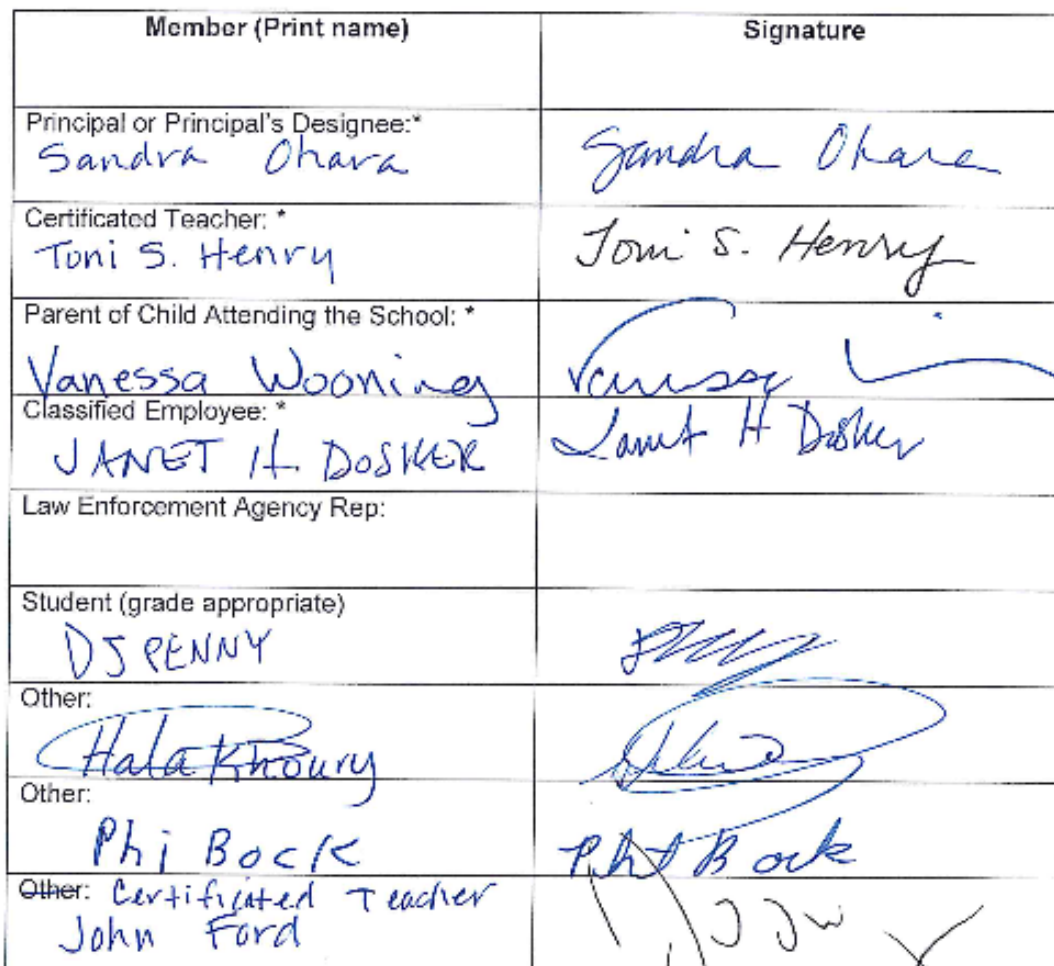 Member (Print name) Signature
Principal or Principal's Designee:*
Sandra Ohara Sandra Ohara
Certificated Teacher: *
Toni S. Henry Toni S. Henry
Parent of Child Attending the School: *
Vanessa Wooning Vanessa
Classified Employee: *
JANET H. DOSKER Janet H Dosker
Law Enforcement Agency Rep:
Student (grade appropriate)
DJ PENNY
Other:
Hala Khoury
Other:
Phi Bock Phi Bock
Other: Certificated Teacher
John Ford